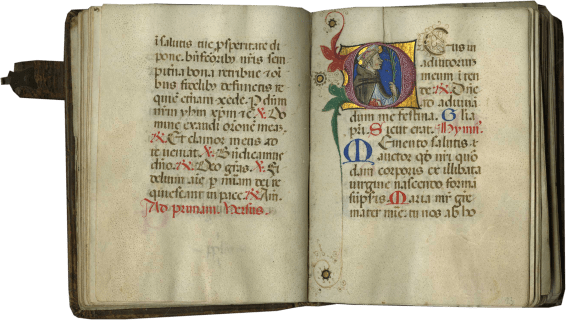 i salutis tue psperitate di
pone. bn̄fcōrib᷒ nr̄is sem
pitna bona retribue. ⁊ oī
bus fidelib᷒ defunctis re
quiē etnam ꝯcede. P dn̄m
nr̄m yhm xpm ⁊c. ℣ Do
mine exaudi oronē meā.
℟ Et clamor meus ad
te veniat. ℣ Bn̄dicamus
dn̄o. ℟ Deo gras. ℣ Fi
delium aīe p mīam dei re
quiescant in pace. ℟ Am̄.
Ad primam. Versus.
Deus in
adiutoriuʒ
meum i ten
de. ℟ Dn̄e
ad adiuva
dum me festina. Glia
pri. Sicut erat. Hymn᷒
Memento salutis
auctor qd nr̄i quo
dam corporis ex illibata
virgine nascendo formā
sūpsis. Maria mr̄ gr̄e
mater mīe. tu nos ab ho